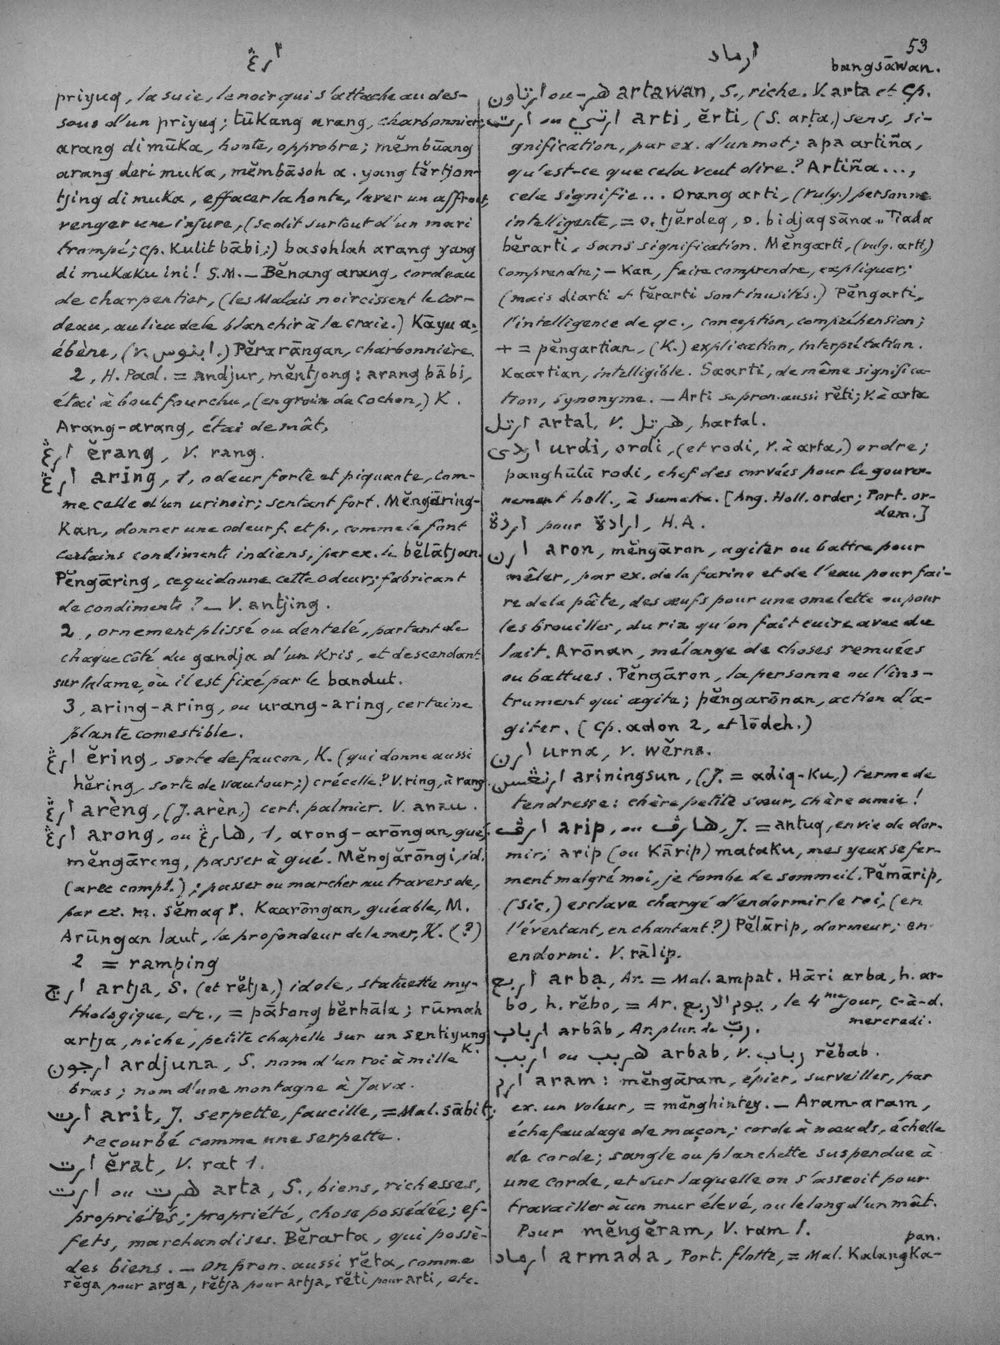 53
ارغ
ارماد
priyuq, la suie, le noir qui s'attache au des-
sous d'un priyuq; tūkang arang, charbonnier;
arang di mūka, honte, opprobre; mĕmbūang
arang deri muka, mĕmbāsoh a. yang tĕrtjon-
tjing di muka, effacer la honte, laver un affront,
venger une injure, (se dit surtout d'un mari
trompé; cp. Kulit bābi;) basohlah arang yang
di mukaku ini! S.M. — Bĕnang arang, cordeau
de charpentier, (les Malais noircissent le cor-
deau, au lieu de le blanchir à la craie.) Kāyu a.,
ébène, (v. ابنوس.) Pĕrarāngan, charbonnière.
2, H. Pad. = andjur, mĕntjong: arang bābi,
étai à bout fourchu, (en groin de cochon,) K.
Arang-arang, étai de mât,
ارغ ĕrang, V. rang.
ارغ aring, 1, odeur forte et piquante, com-
me celle d'un urinoir; sentant fort. Mĕngāring-
kan, donner une odeur f. et p., comme le font
certains condiments indiens, par ex. le bĕlātjan.
Pĕngāring, ce qui donne cette odeur; fabricant
de condiments? — V. antjing.
2, ornement plissé ou dentelé, partant de
chaque côté du gandja d'un Kris, et descendant
sur la lame, où il est fixé par le bandut.
3, aring-aring, ou urang-aring, certaine
plante comestible.
ارغ ĕring, sorte de faucon, K. (qui donne aussi
hĕring, sorte de vautour;) crécelle? V. ring, à rang.
ارغ arèng, (J. arèn,) cert. palmier. V. anau.
ارغ arong, ou هارغ, 1, arong-arōngan, gué;
mĕngārong, passer à gué. Mĕngārōngi, id.
(avec compl.); passer ou marcher au travers de,
par ex. m. sĕmaq². Kaarōngan, guéable, M.
Arūngan laut, la profondeur de la mer, K. (?)
2 = ramping
ارج artja, S. (et rĕtja,) idole, statuette my-
thologique, etc., = pātong bĕrhāla; rūmah
artja, niche, petite chapelle sur un sentiyung
K.
ارجون ardjuna, S. nom d'un roi à mille
bras; nom d'une montagne à Java.
ارت arit, J. serpette, faucille, = Mal. sābit;
recourbé comme une serpette.
ارت ĕrat, V. rat 1.
ارت ou هرت arta, S., biens, richesses,
propriétés; propriété, chose possédée; ef-
fets, marchandises. Bĕrarta, qui possè-
de des biens. — On pron. aussi rĕta, comme
rĕga pour arga, rĕtja pour artja, rĕti pour arti, etc.
bangsāwan.
ارتاون ou هر– artawan, S., riche. V. arta et cp.
ارت ou ارتي arti, ĕrti, (S. arta.) sens, si-
gnification, par ex. d'un mot; apa artiña,
qu'est-ce que cela veut dire? Artiña...,
cela signifie... Orang arti, (vulg.) personne
intelligente, = o. tjĕrdeq, o. bidjaqsāna. Tiada
bĕrarti, sans signification. Mĕngarti, (vulg. arti,)
comprendre; — kan, faire comprendre, expliquer;
(mais diarti et tĕrarti sont inusités.) Pĕngarti,
l'intelligence de qc., conception, compréhension;
+ = pĕngartian, (K.) explication, interprétation.
Kaartian, intelligible. Saarti, de même significa-
tion, synonyme. — Arti se pron. aussi rĕti; V. à arta
ارتل artal, V. هرتل, hartal.
اردي urdi, ordi, (et rodi, V. à arta,) ordre;
panghūlū rodi, chef des corvées pour le gouver-
nement holl., à Sumatra. [Ang. Holl. order; Port. or-
dem.]
اردة pour ارادة, H.A.
ارن aron, mĕngāron, agiter ou battre pour
mêler, par ex. de la farine et de l'eau pour fai-
re de la pâte, des œufs pour une omelette ou pour
les brouiller, du riz qu'on fait cuire avec du
lait. Arōnan, mélange de choses remuées
ou battues. Pĕngāron, la personne ou l'ins-
trument qui agite; pĕngarōnan, action d'a-
giter. (Cp. adon 2, et lōdeh.)
ارن urna, V. wĕrna.
ارننغسن ariningsun, (J. = adiq-ku,) terme de
tendresse: chère petite sœur, chère amie!
ارف arip, ou هارف, J. = antuq, envie de dor-
mir; arip (ou Kārip) mataku, mes yeux se fer-
ment malgré moi, je tombe de sommeil. Pĕmārip,
(sic,) esclave chargé d'endormir le roi, (en
l'éventant, en chantant?) Pĕlārip, dormeur; en-
endormi. V. rālip.
اربع arba, Ar. = Mal. ampat. Hāri arba, h. ar-
bo, h. rĕbo, = Ar. يوم الاربع, le 4me jour, c-à-d.
mercredi.
ارباب arbāb, Ar. plur. de ربّ.
اربب ou هربب arbab, V. رباب rĕbab.
ارم aram: mĕngāram, épier, surveiller, par
ex. un voleur, = mĕnghintey. — Aram-aram,
échafaudage de maçon; corde à nœuds, échelle
de corde; sangle ou planchette suspendue à
une corde, et sur laquelle on s'asseoit pour
travailler à un mur élevé, ou le long d'un mât.
Pour mĕngĕram, V. ram 1.
pan.
ارماد armada, Port. flotte, = Mal. Kalangka-